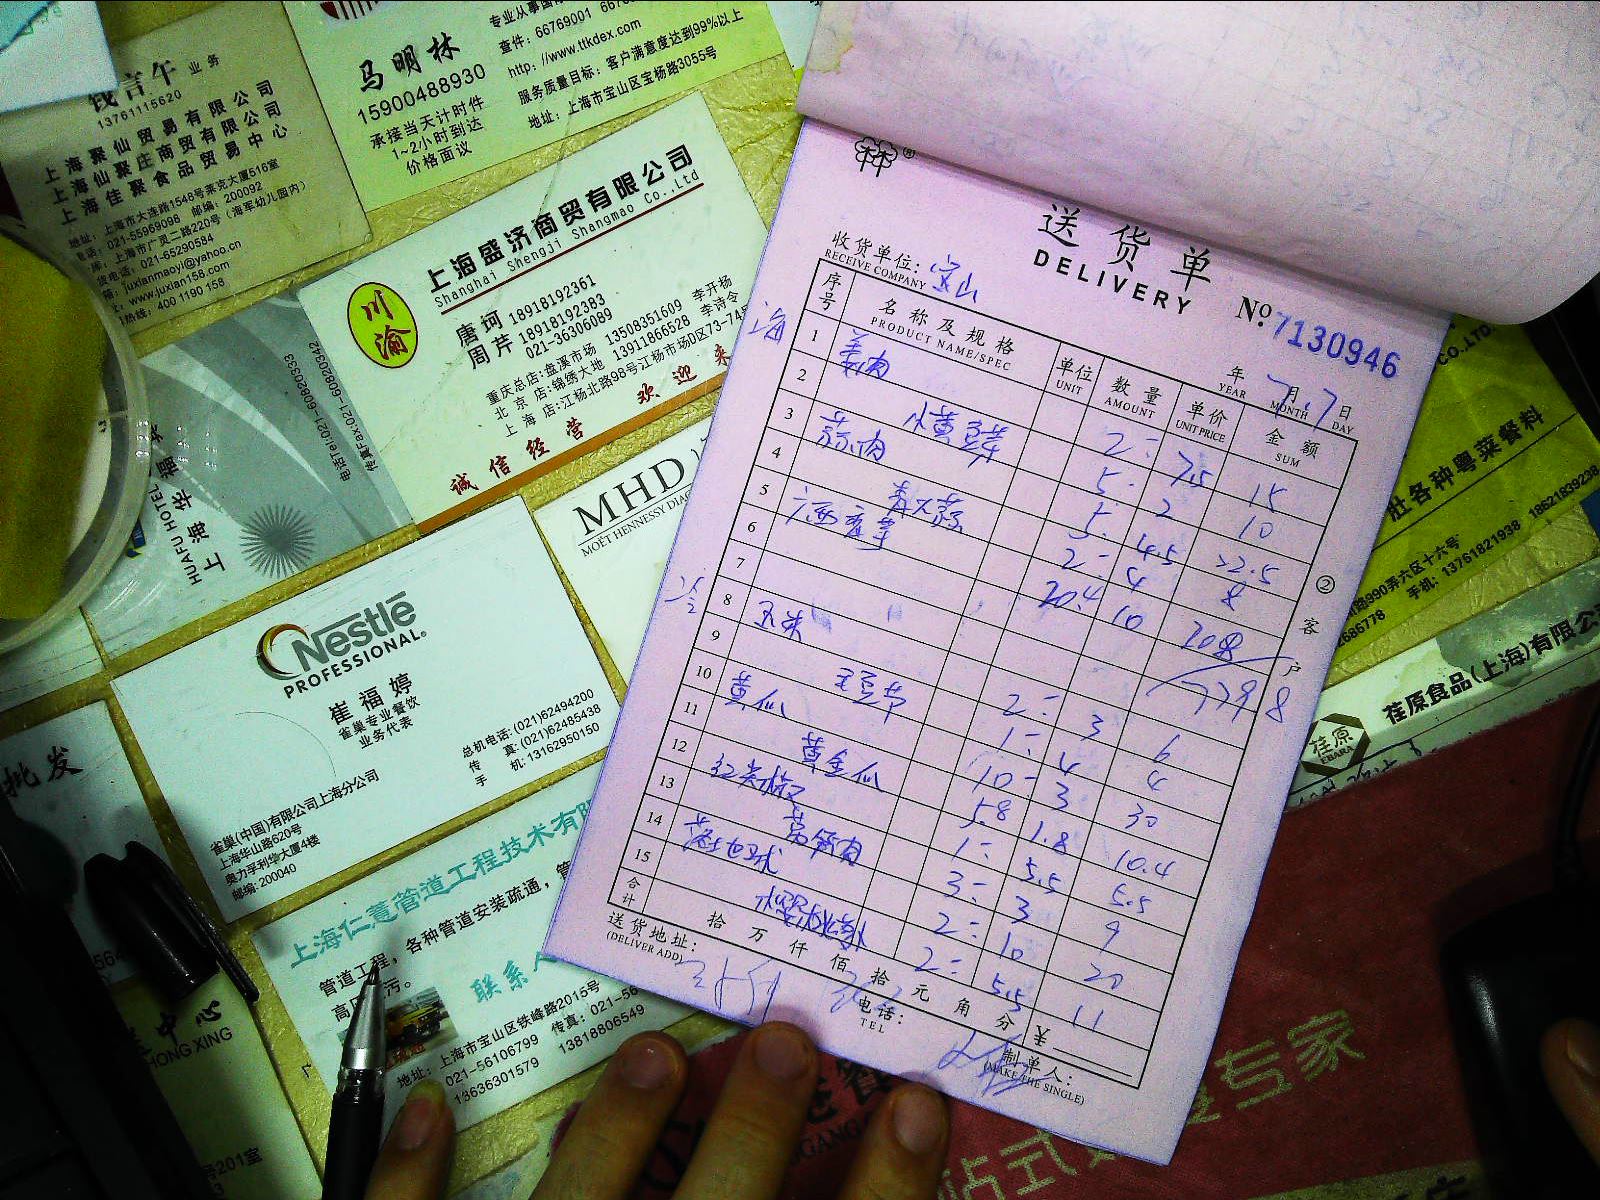 钱言午 业务
13761115620
上海聚仙贸易有限公司
上海仙聚庄商贸有限公司
上海佳聚食品贸易中心
地址：上海市大连路1548号莱克大厦516室
电话：021-55969098 邮编：200092
库：上海市广灵二路220号（海军幼儿园内）
货电话：021-65290584
箱：juxianmaoyi@yahoo.cn
址：www.juxian158.com
热线：400 1190 158
马明林
15900488930
承接当天计时件
1~2小时到达
价格面议
专业从事国
查件：66769001
http：//www.ttkdex.com
服务质量目标：客户满意度达到99%以上
地址：上海市宝山区宝杨路3055号
川渝
上海盛济商贸有限公司
Shanghai Shengji Shangmao Co.,Ltd
唐珂 18918192361
周芹 18918192383
021-36306089
重庆总店:盘溪市场 13508351609 李开杨
北京店:锦绣大地 13911866528 李诗令
上海店:江杨北路98号江杨市场D区73-74
诚信经营 欢迎来
HUAFU HOTEL
上海华福
电话Tel:021-60820333
传真Fax:021-60820342
MHD
MOËT HENNESSY DIAG
Nestlé
PROFESSIONAL
崔福婷
雀巢专业餐饮
业务代表
总机电话:(021)62494200
传真:(021)62485438
手机:13162950150
雀巢(中国)有限公司上海分公司
上海华山路620号
奥力孚利华大厦4楼
邮编:200040
批发
上海仁薏管道工程技术有限
管道工程，各种管道安装疏通，管
高压 污。
联系人
地址：上海市宝山区铁峰路2015号
021-56106799 传真：021-56
13636301579 13818806549
中心
HONG XING
号201室
送货单
DELIVERY
收货单位：宝山
RECEIVE COMPANY
No 7130946
年 7月.7日
YEAR MONTH DAY
序号 名称及规格 单位 数量 单价 金额
PRODUCT NAME/SPEC UNIT AMOUNT UNIT PRICE SUM
海
1 姜肉 2- 7.5 15
2 小黄豆芽 5- 2 10
3 蒜肉 5- 4.5 22.5
4 青大蒜 2- 4 8
5 广西香芋 20.4 10 208
6
7
8 玉米 2- 3 6
9 1- 4 4
10 黄瓜 10- 3 30
11 黄金瓜 5.8 1.8 10.4
12 红尖椒 1- 5.5 5.5
13 莴笋肉 3- 3 9
14 2- 10 20
15 2- 5.5 11
合计 拾万仟佰拾元角分 ￥
送货地址：
(DELIVER ADD)
电话：
TEL
制单人：
(MAKE THE SINGLE)
② 客户
CO.,LTD
肚各种粤菜餐料
路990弄六区十六号
手机：13761821938 18621839238
686778
荏原
EBARA
荏原食品(上海)有限公
专家
站式